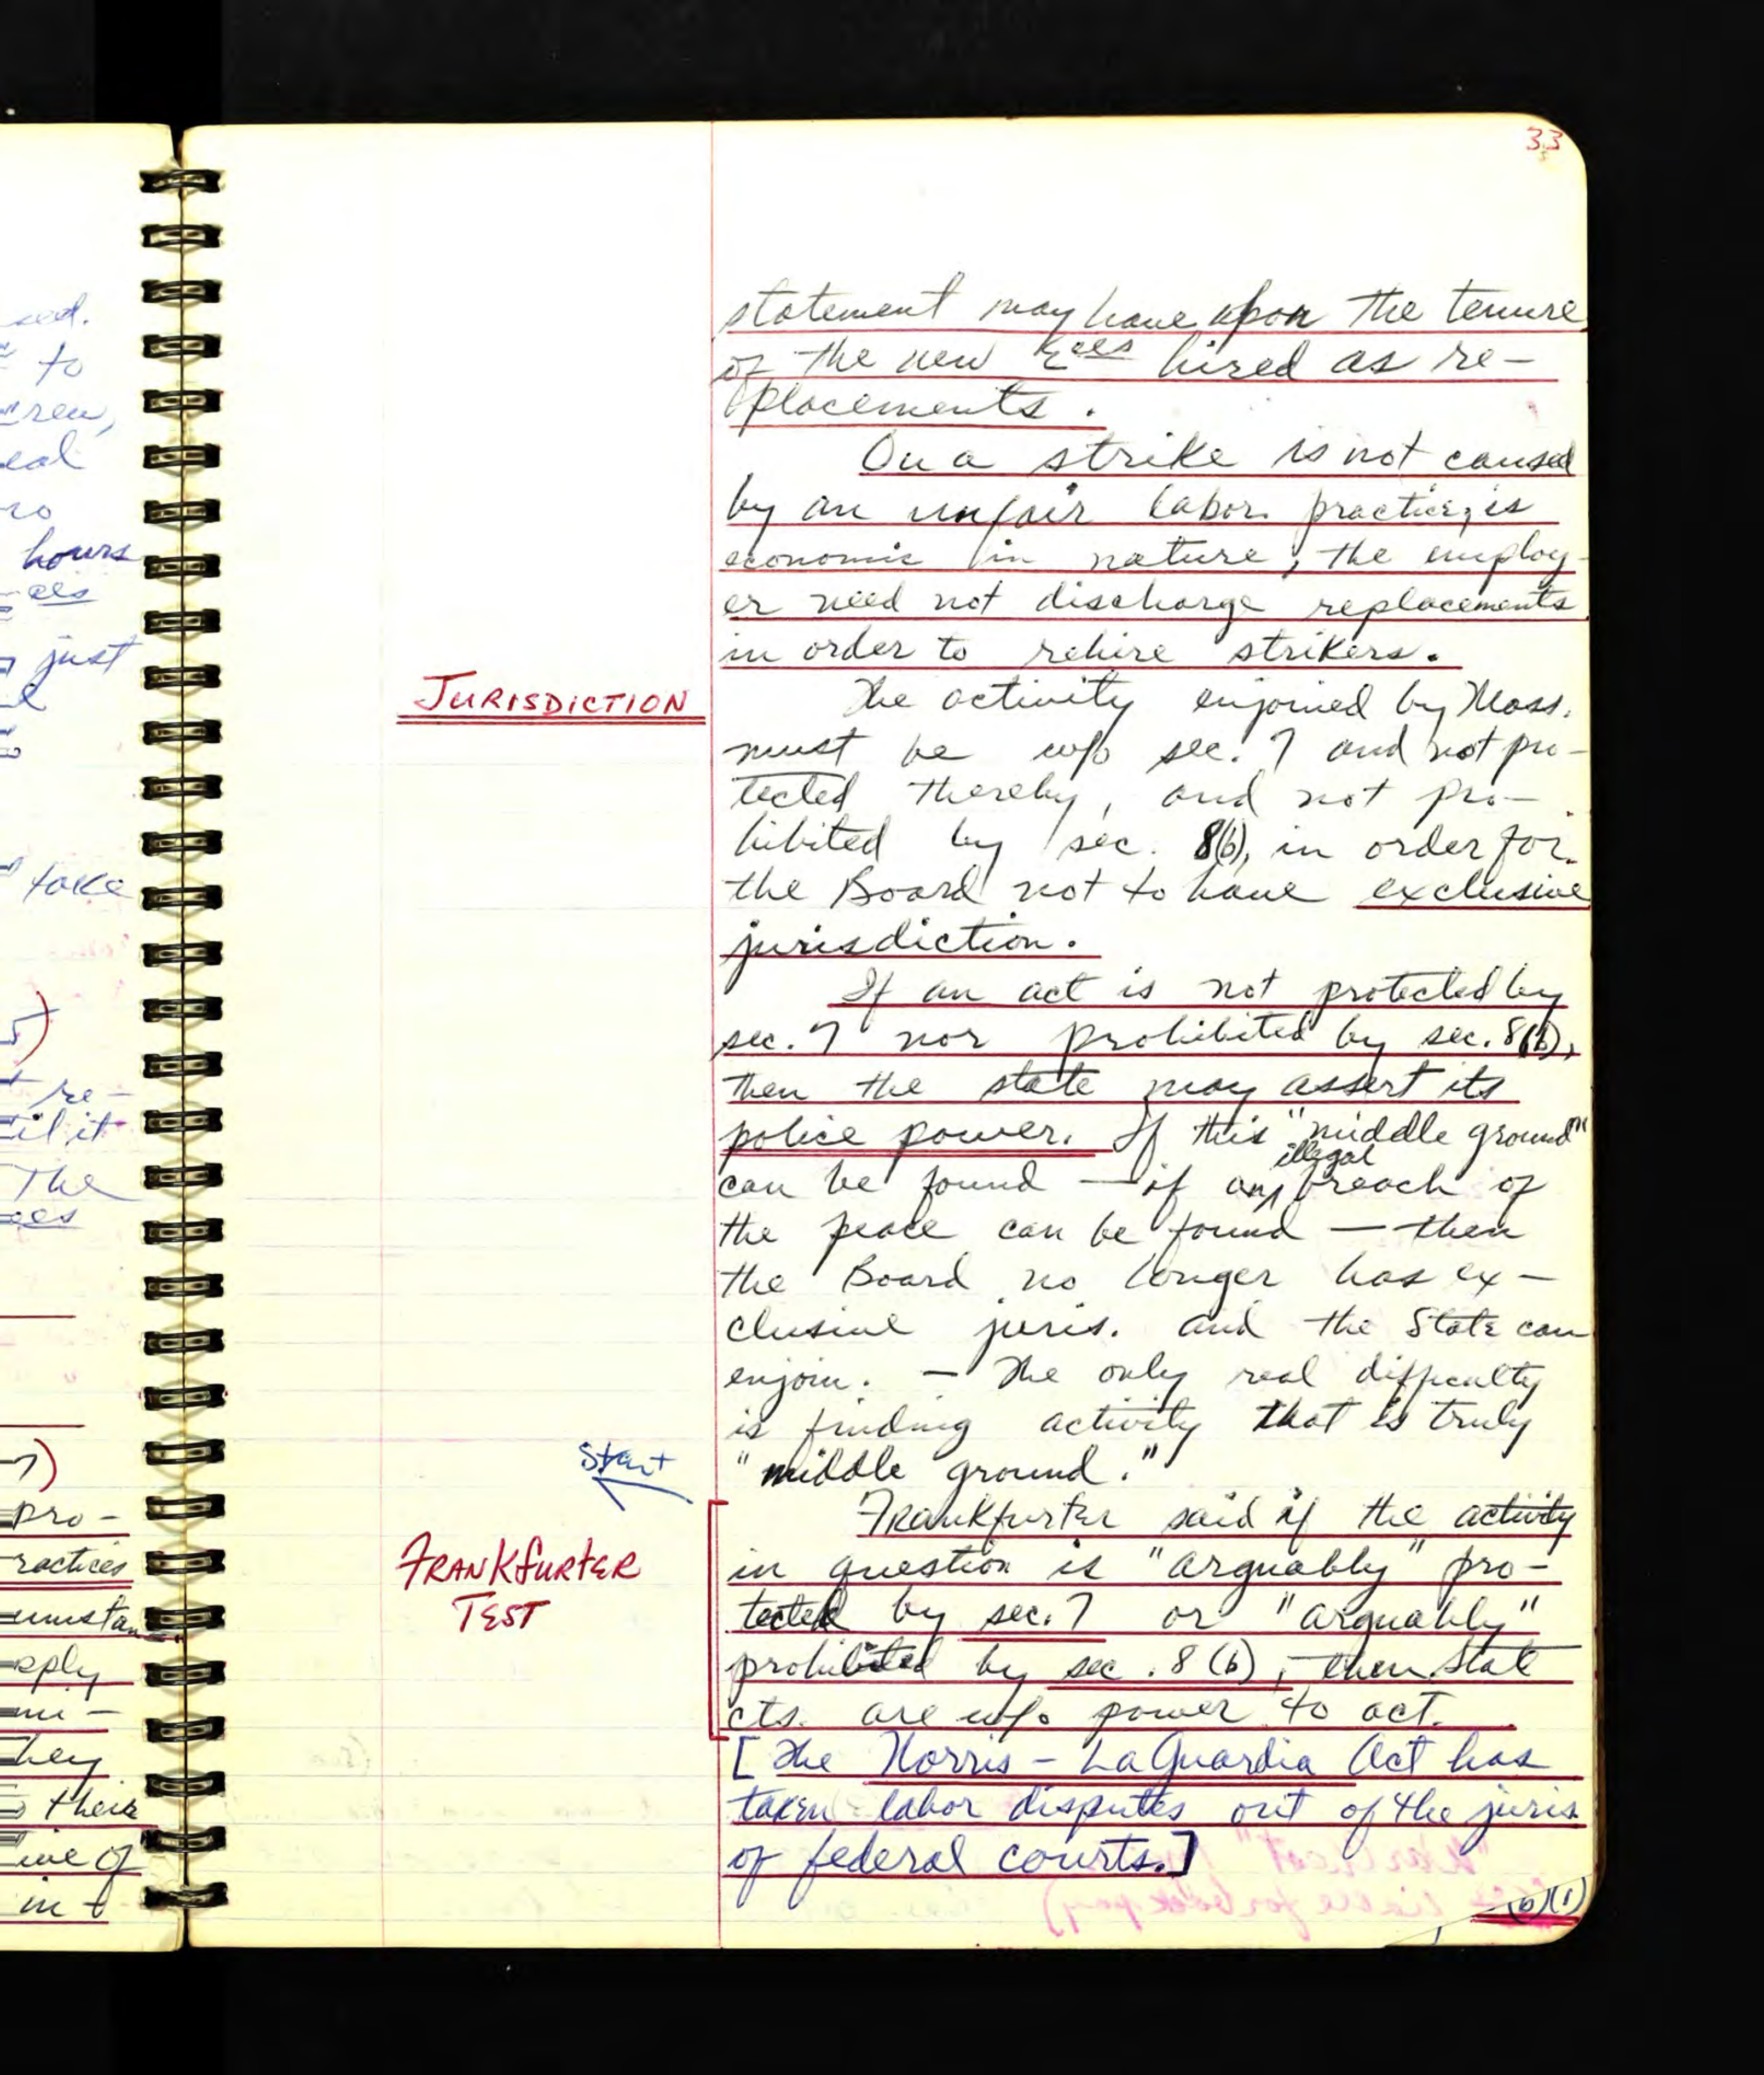 33
statement may have upon the tenure
of the new Eees hired as re-
placements.
On a strike is not caused
by an unfair labor practice, is
economic in nature, the employ-
er need not discharge replacements
in order to rehire strikers.
JURISDICTION
The activity enjoined by Mass.
must be w/o sec. 7 and not pro-
tected thereby, and not pro-
hibited by sec. 8(b), in order for
the Board not to have exclusive
jurisdiction.
If an act is not protected by
sec. 7 nor prohibited by sec. 8(b),
then the state may assert its
police power. If this "middle ground"
can be found — if any illegal breach of
the peace can be found — then
the Board no longer has ex-
clusive juris. and the State can
enjoin. — The only real difficulty
is finding activity that is truly
"middle ground."
Start
FRANKFURTER
TEST
Frankfurter said if the activity
in question is "arguably" pro-
tected by sec. 7 or "arguably"
prohibited by sec. 8(b), then State
cts. are w/o power to act.
[The Norris-LaGuardia Act has
taken labor disputes out of the juris
of federal courts.]
(b)(1)
sed.
to
eal
hours
ees
just
take
re-
til it
The
ees
7)
pro-
ractices
umstan
pply
hey
their
ive of
in